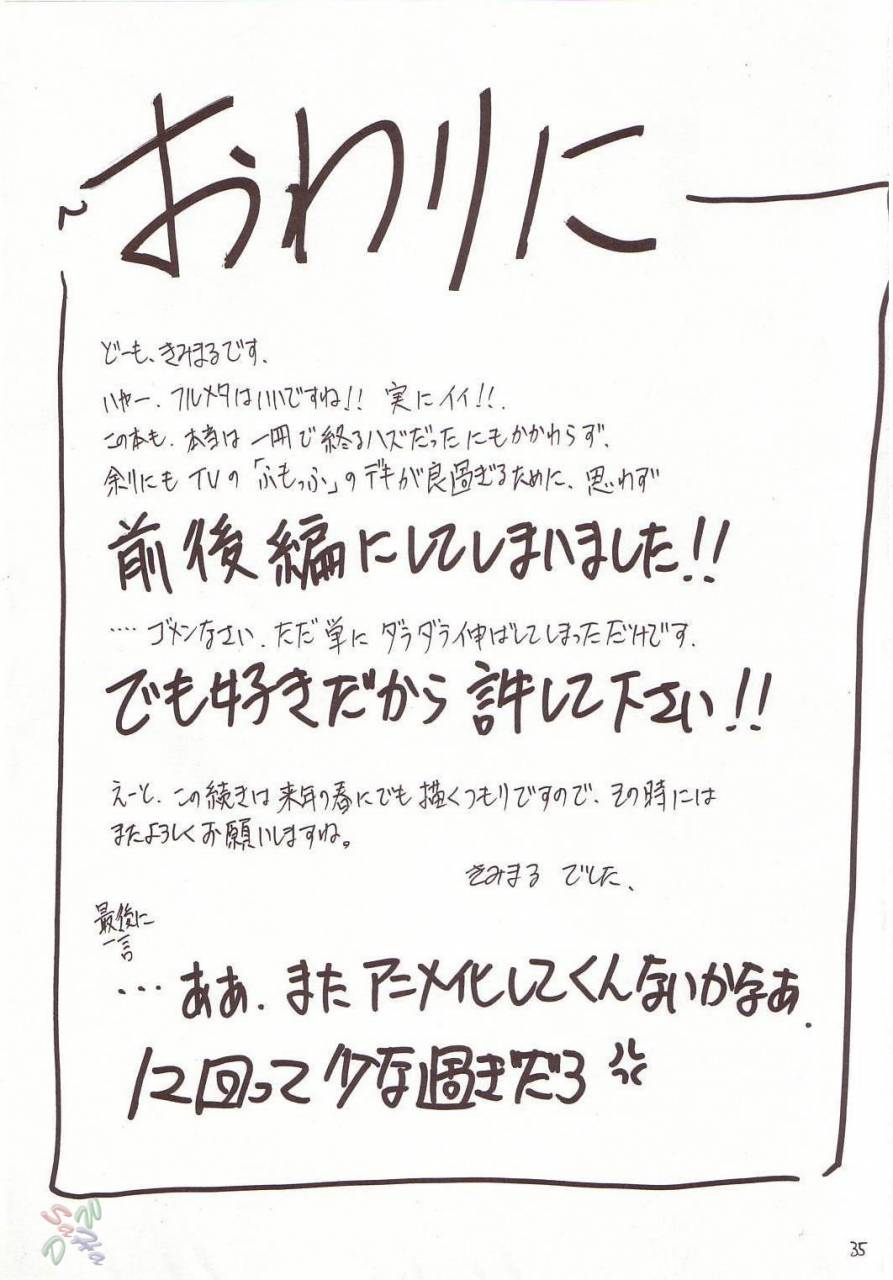 おわりに
どーも、きみまるです.
ハヤー、フルメタはいいですね!! 実にイイ!!.
この本も、本当は一冊で終るハズだったにもかかわらず、
余りにもTVの「ふもっふ」のデキが良過ぎるために、思わず
前後編にしてしまいました!!
‥‥ ゴメンなさい.ただ単にダラダラ伸ばしてしまっただけです.
でも好きだから許して下さい!!
えーと、この続きは来年の春にでも描くつもりですので、その時には
またよろしくお願いしますね。
きみまる でした、
最後に
一言
…ああ、またアニメ化してくんないかなあ.
12回って少な過ぎだろ
35
SaHa